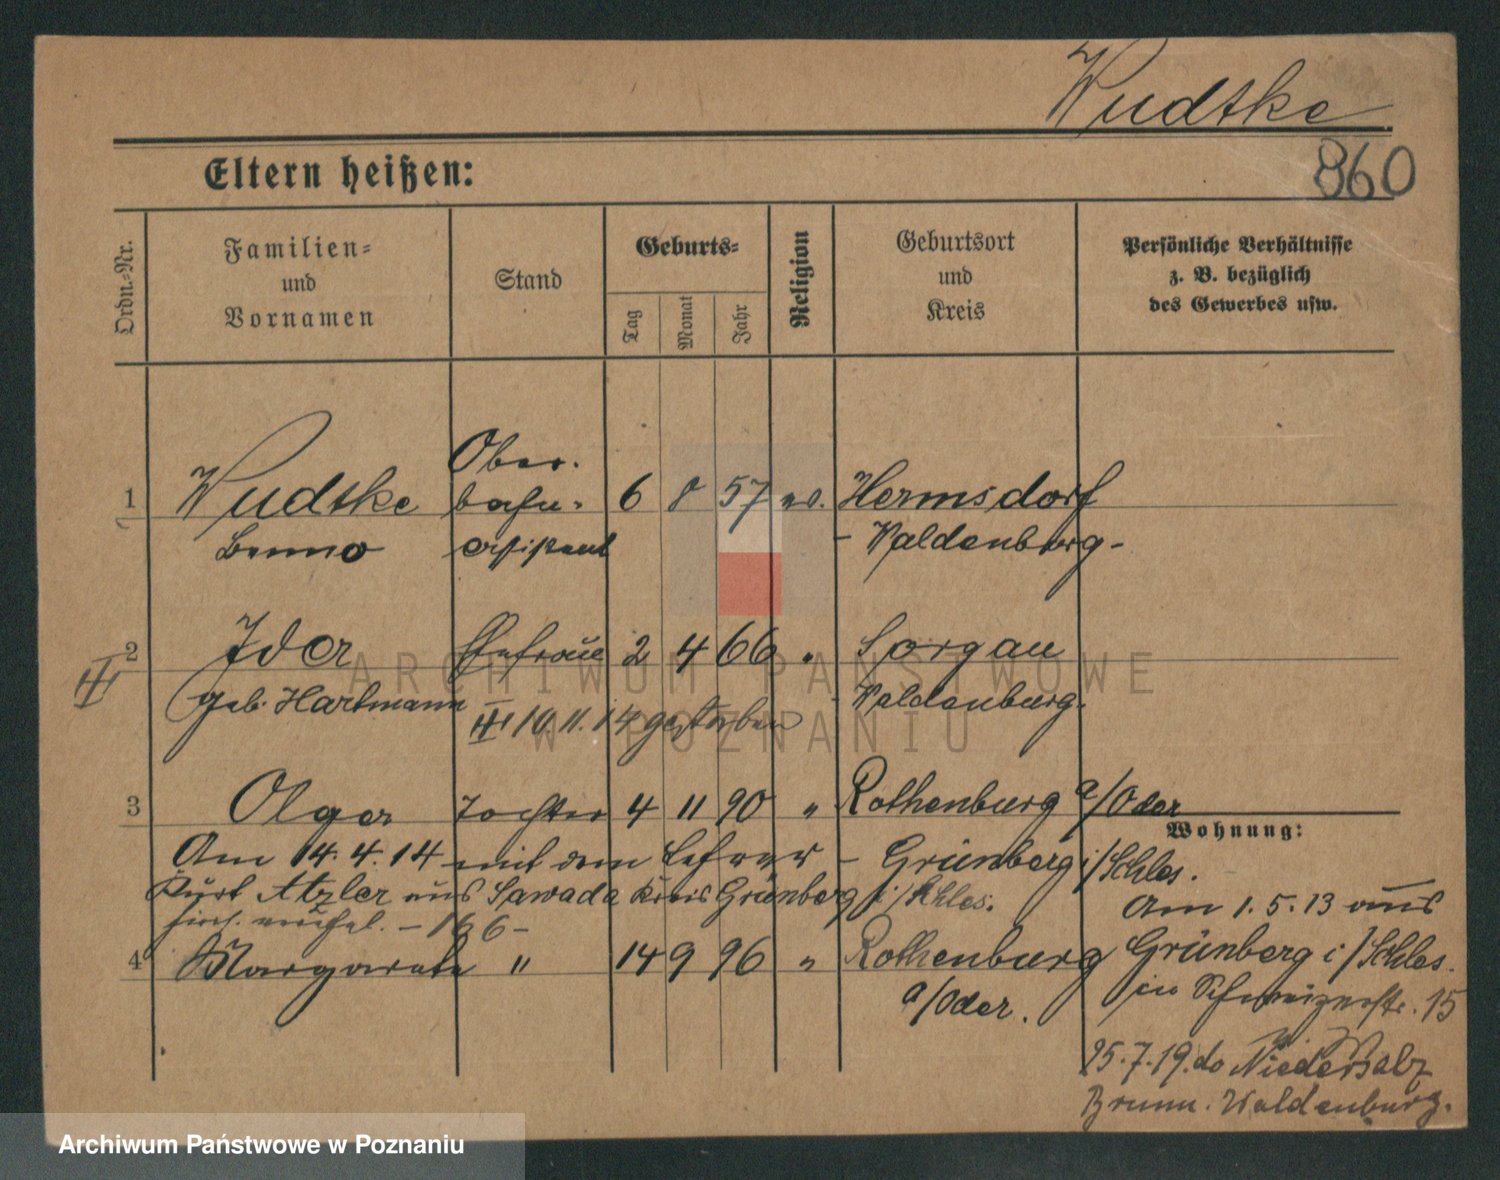 Wudtke.
860
Eltern heißen:
Ordn.-Nr.
Familien-
und
Vornamen
Stand
Geburts-
Tag
Monat
Jahr
Religion
Geburtsort
und
Kreis
Persönliche Verhältnisse
z. B. bezüglich
des Gewerbes usw.
Ober-
1 Wudtke bahn- 6 8 57 ev. Hermsdorf
Benno assistent - Waldenburg -
2 Ida Ehefrau 2 4 66 " Sorgau
III geb. Hartmann - Waldenburg.
III 10.11.14 gestorben
3 Olga Tochter 4 11 90 " Rothenburg a/Oder
Wohnung:
Am 14.4.14 mit dem Lehrer - Grünberg i/Schles.
Kurt Atzler aus Sawada Kreis Grünberg i/Schles.
- 166 -
4 Margarete " 14 9 96 " Rothenburg
a/Oder.
Am 1.5.13 aus
Grünberg i/Schles.
in Schweizerstr. 15
25.7.19. do Niedersalz
Brunn. Waldenburg.
ARCHIWUM PAŃSTWOWE
W POZNANIU
Archiwum Państwowe w Poznaniu